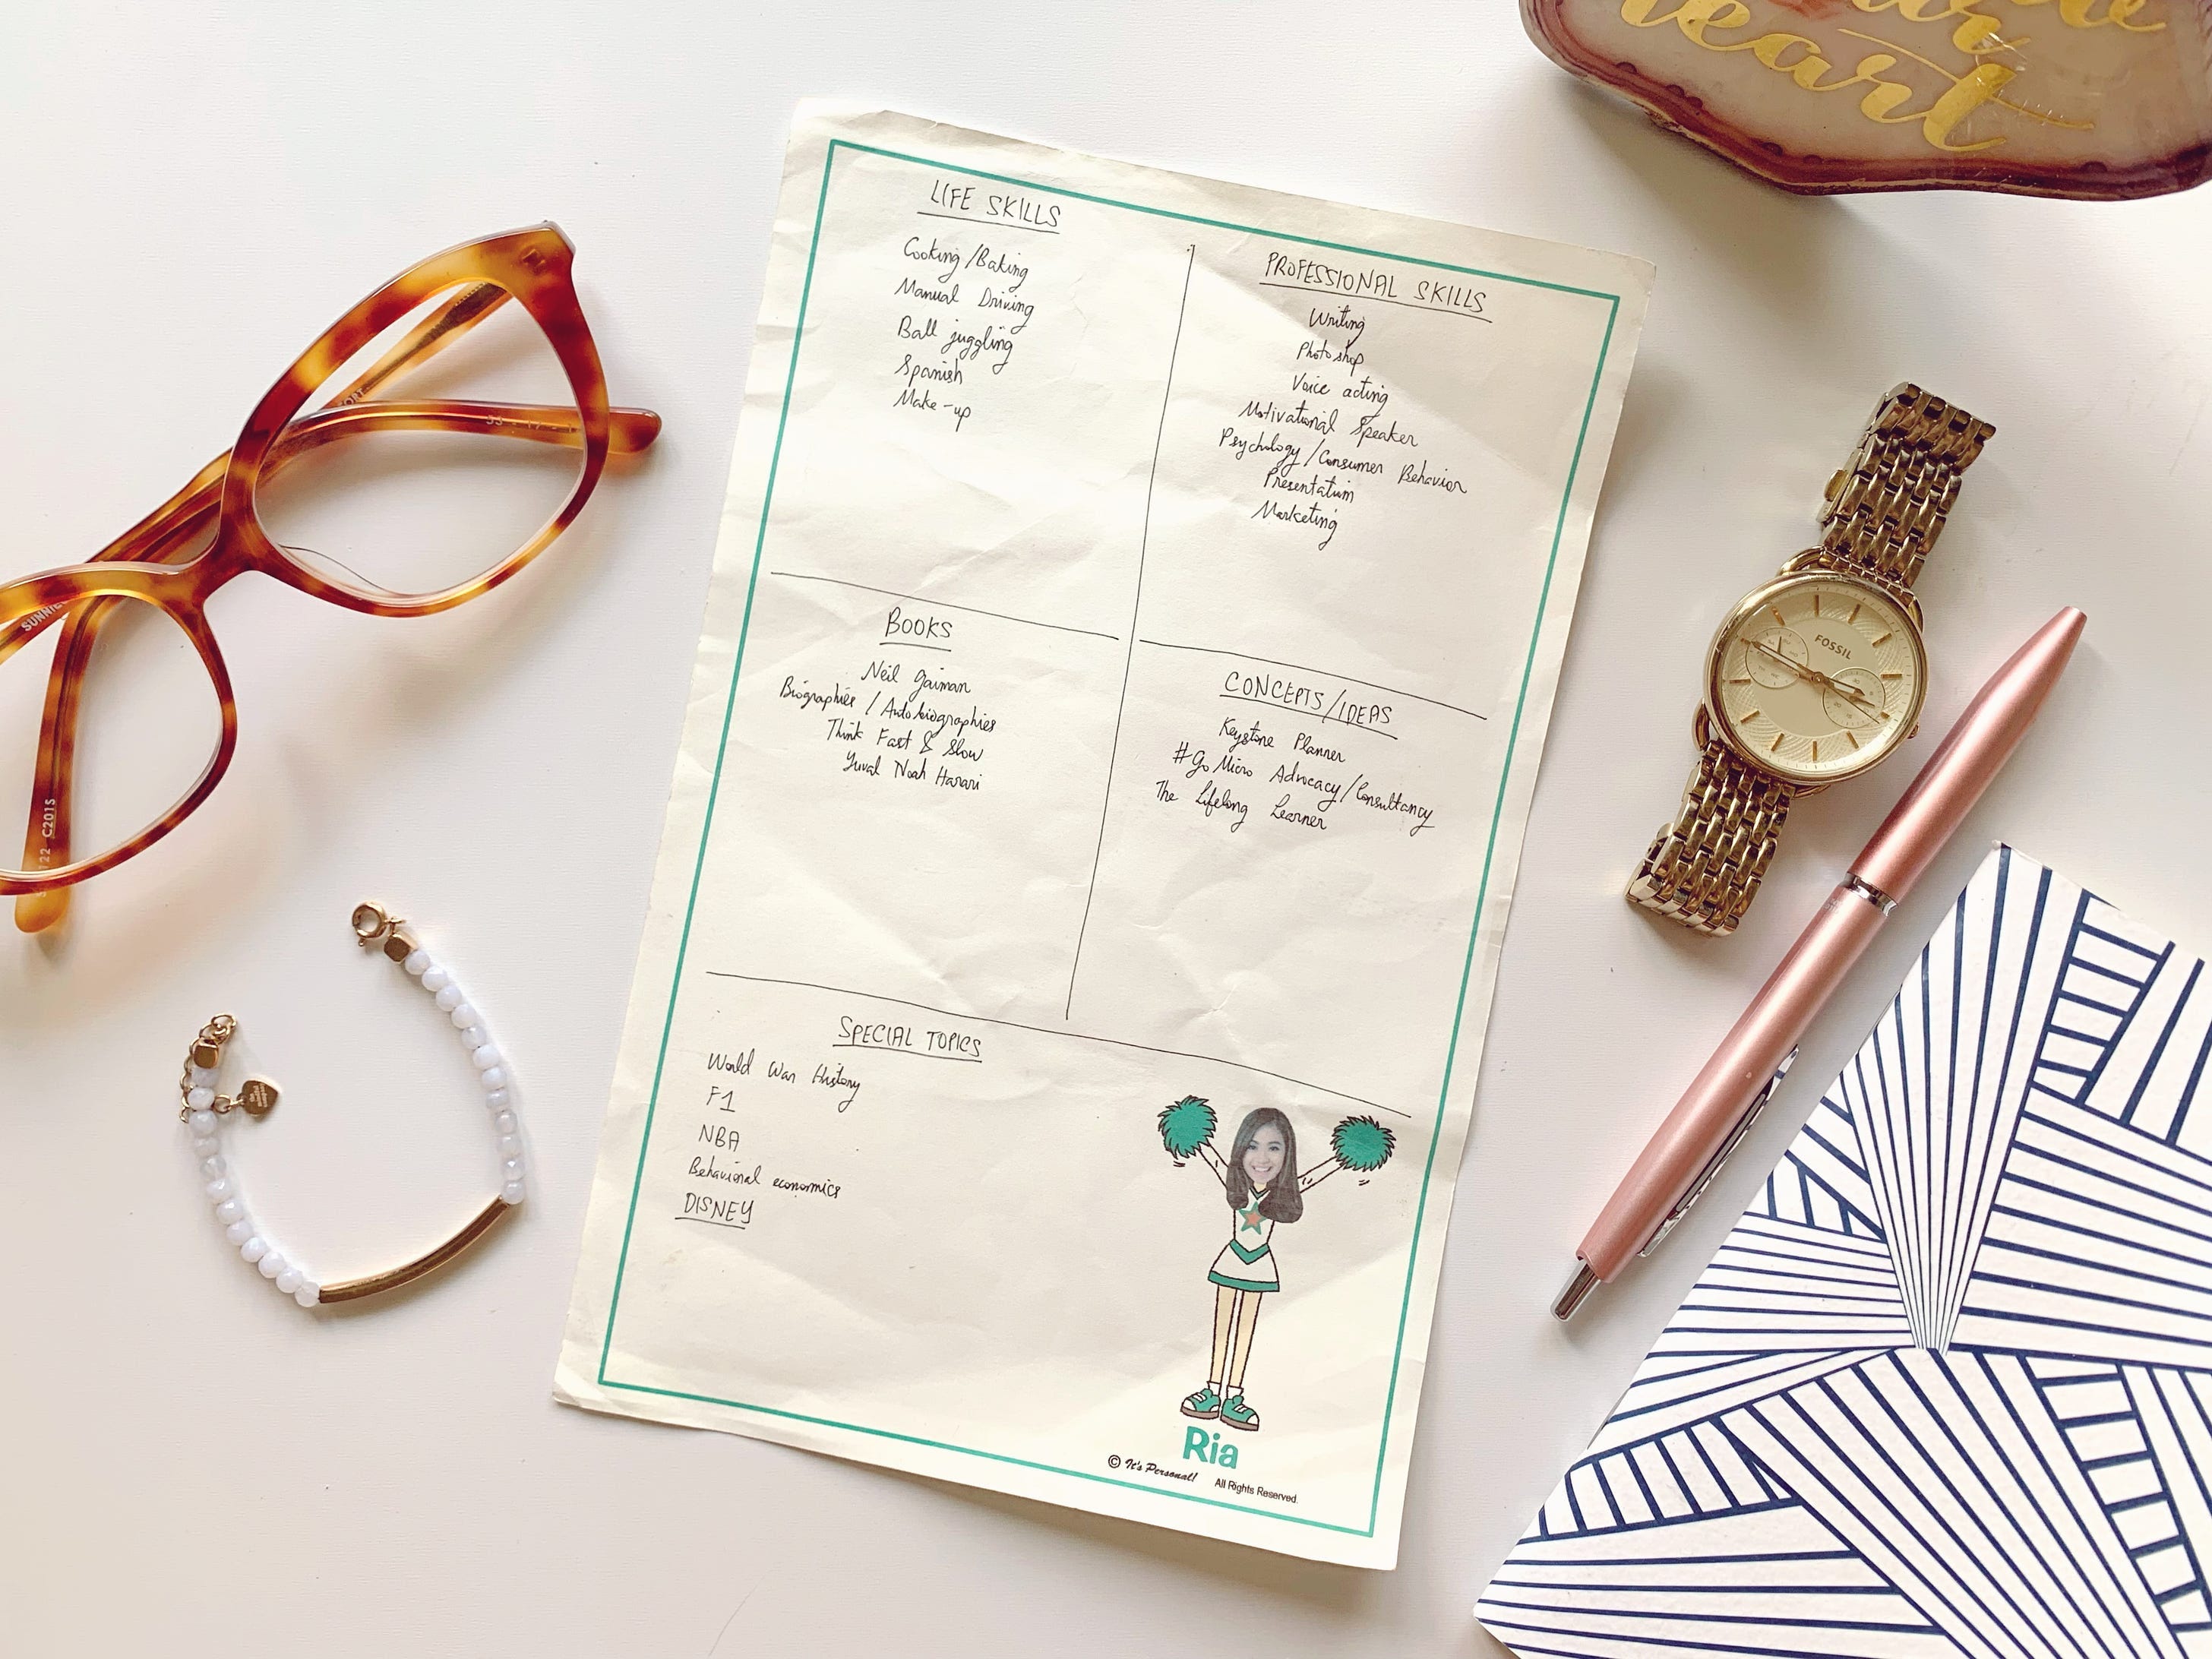 LIFE SKILLS
Cooking/Baking
Manual Driving
Ball juggling
Spanish
Make-up
PROFESSIONAL SKILLS
Writing
Photoshop
Voice acting
Motivational Speaker
Psychology/Consumer Behavior
Presentation
Marketing
BOOKS
Neil Gaiman
Biographies / Autobiographies
Think Fast & Slow
Yuval Noah Harari
CONCEPTS/IDEAS
Keystone Planner
#Go Micro Advocacy/Consultancy
The Lifelong Learner
SPECIAL TOPICS
World War History
F1
NBA
Behavioral economics
DISNEY
Ria
© It's Personal! All Rights Reserved.
heart
FOSSIL
C201S